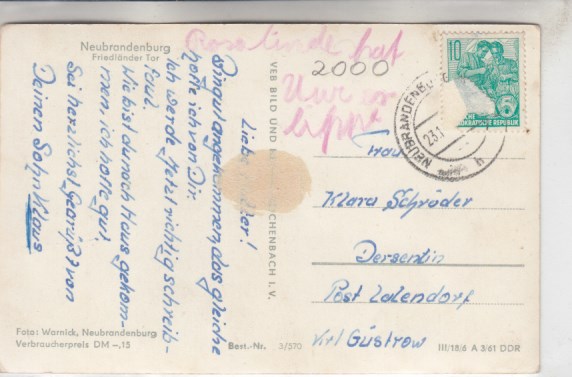 Neubrandenburg
Friedländer Tor
Rosalinde hat
2000
VEB BILD UND
REICHENBACH I. V.
Bin gut angekommen, das gleiche
hoffe ich von Dir.
Ich werde jetzt richtig schreib-
en
Wie bist du nach Haus gekom-
men, ich hoffe gut.
Sei herzlichst gegrüßt von
Deinem Sohn Klaus
10
DEMOKRATISCHE REPUBLIK
5
NEUBRANDENBURG
23.1
h
Frau
Klara Schröder
Dersentin
Post Lalendorf
Krs. Güstrow
Foto: Warnick, Neubrandenburg
Verbraucherpreis DM -,15
Best.-Nr. 3/570
III/18/6 A 3/61 DDR